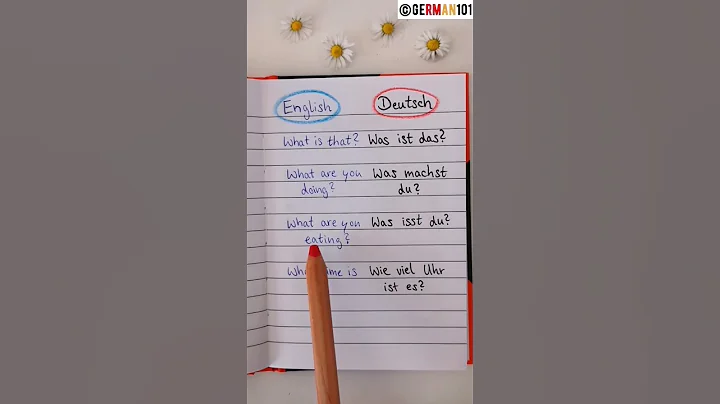 ©GERMAN101
English Deutsch
What is that? Was ist das?
What are you Was machst
doing? du?
What are you Was isst du?
eating?
is Wie viel Uhr
ist es?